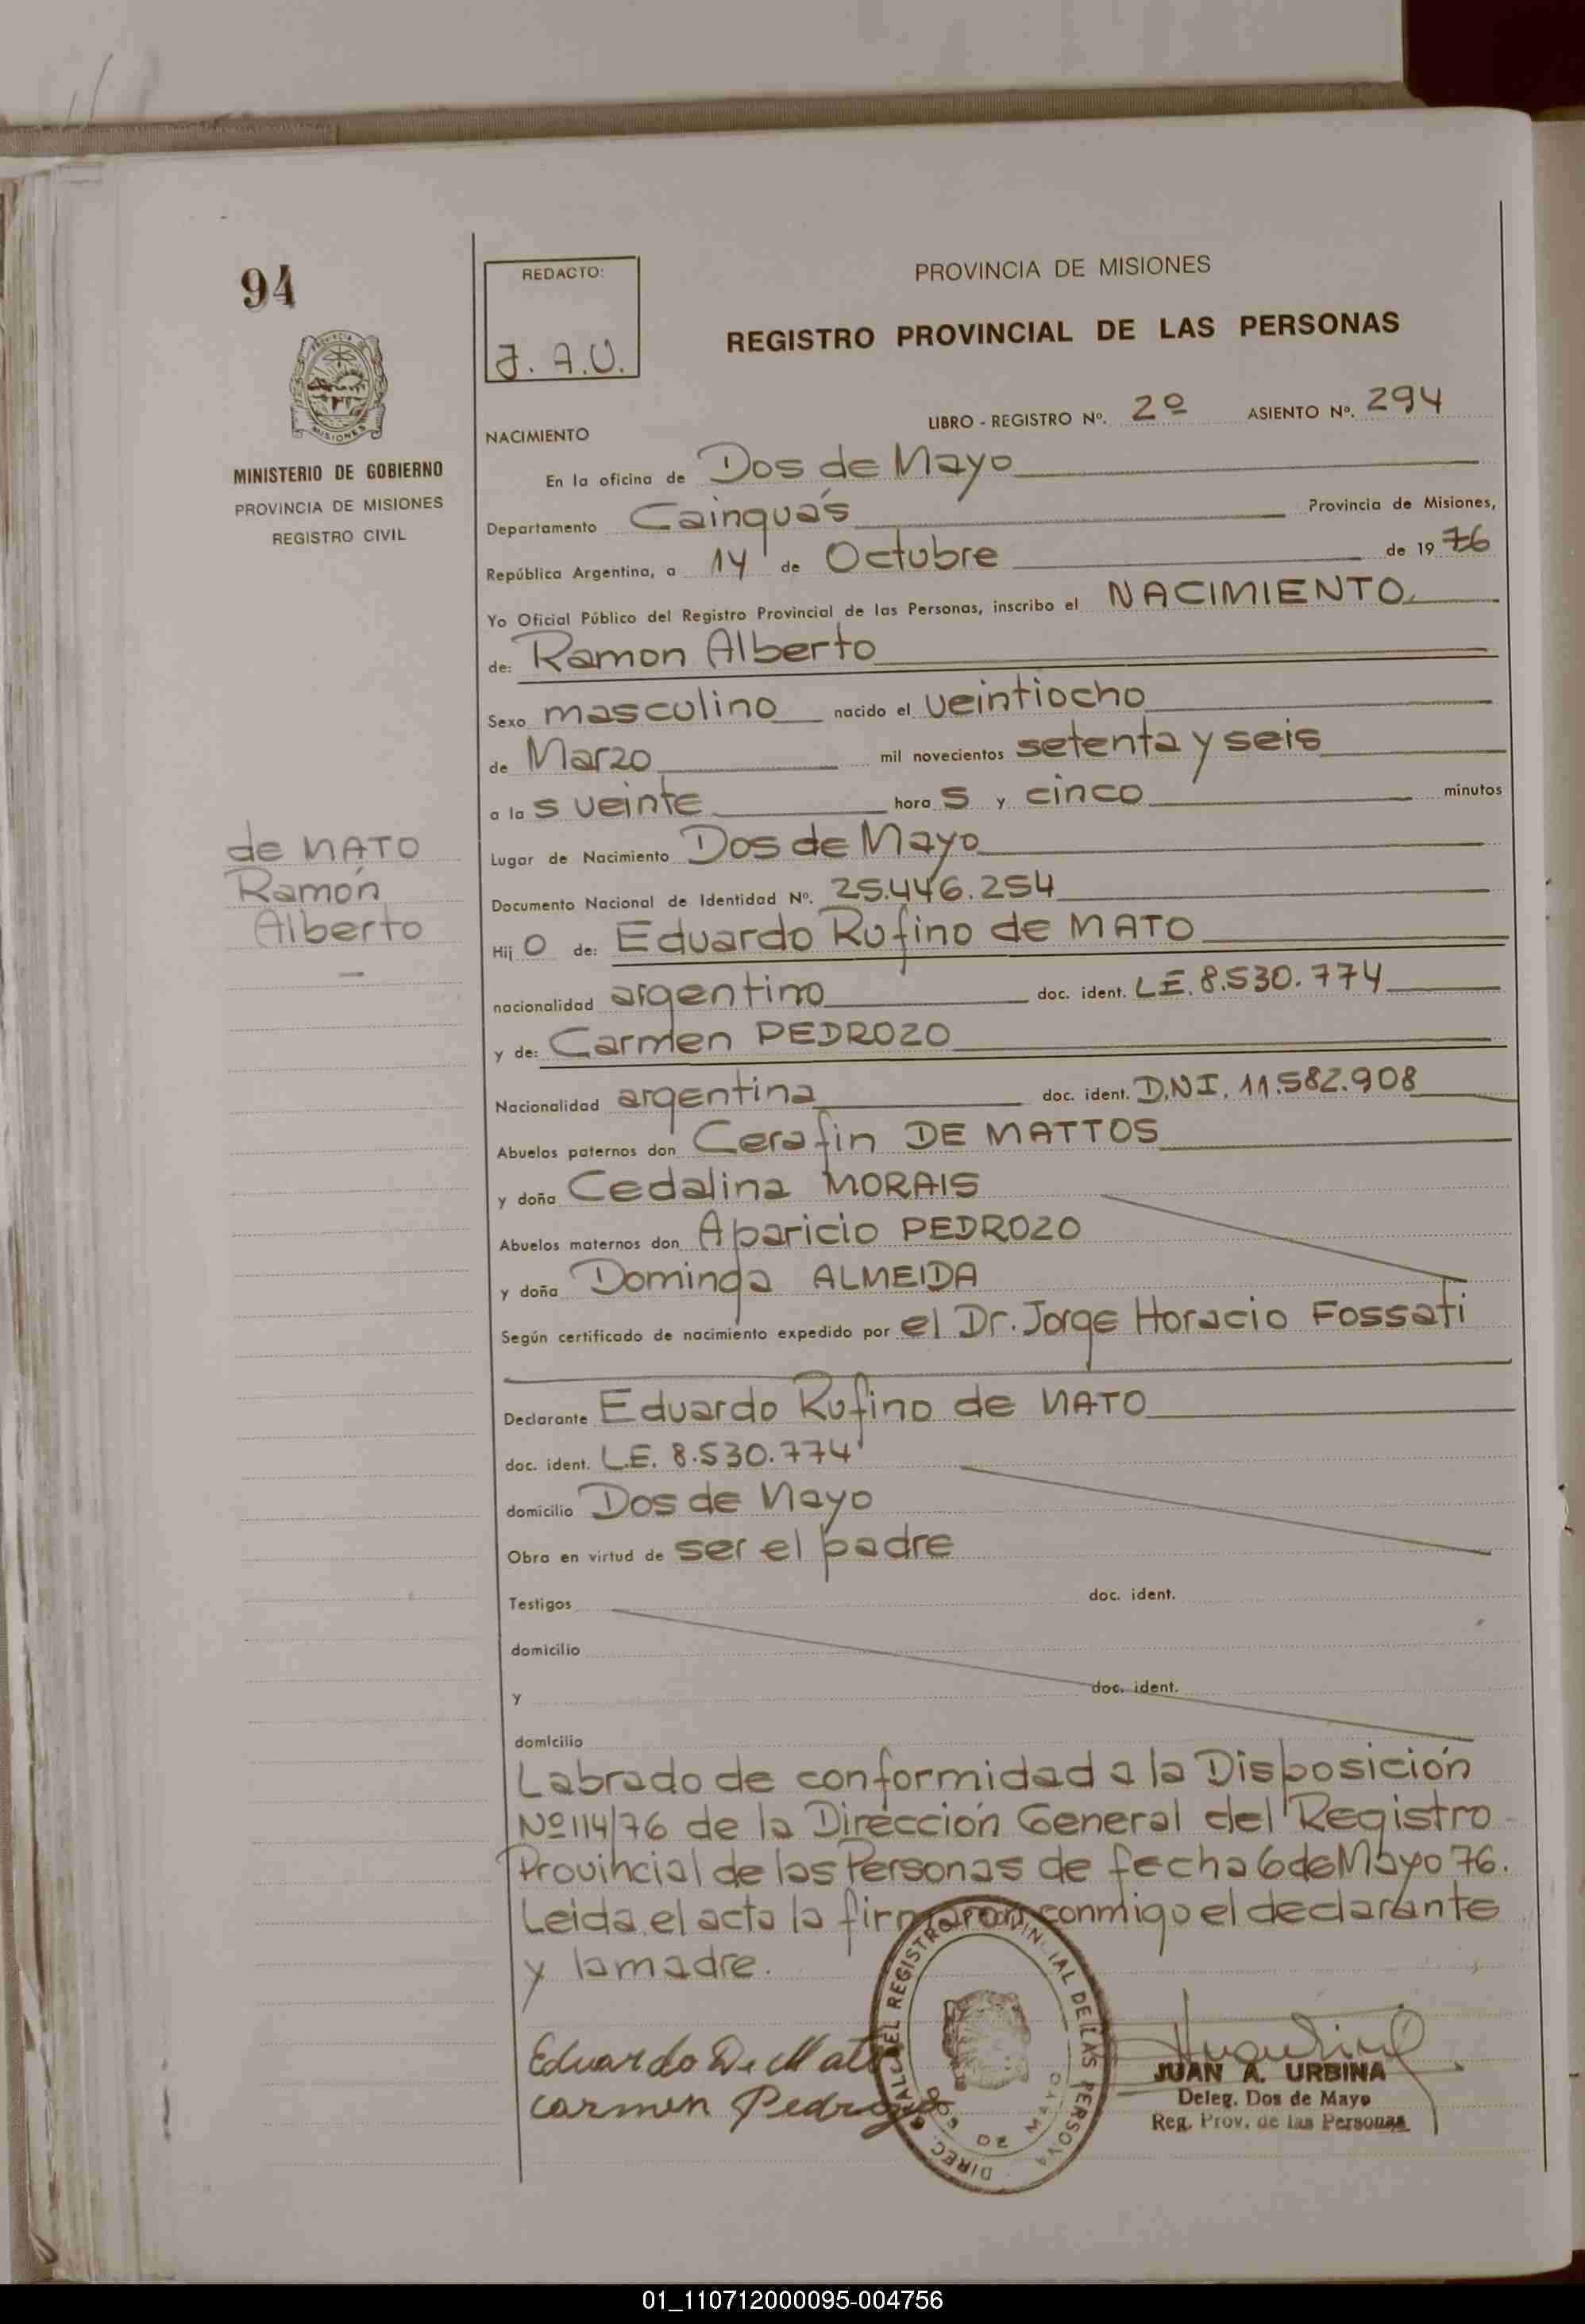 94
REDACTO:
J. A.U.
PROVINCIA DE MISIONES
REGISTRO PROVINCIAL DE LAS PERSONAS
PROVINCIA DE
MISIONES
MINISTERIO DE GOBIERNO
PROVINCIA DE MISIONES
REGISTRO CIVIL
LIBRO - REGISTRO Nº. 2º ASIENTO Nº. 294
NACIMIENTO
En la oficina de Dos de Mayo
Departamento Cainguás Provincia de Misiones,
República Argentina, a 14 de Octubre de 19 76
Yo Oficial Público del Registro Provincial de las Personas, inscribo el NACIMIENTO
de: Ramon Alberto
Sexo masculino nacido el veintiocho
de Marzo mil novecientos setenta y seis
a la s veinte hora s y cinco minutos
Lugar de Nacimiento Dos de Mayo
Documento Nacional de Identidad Nº. 25.446.254
de MATO
Ramón
Alberto
Hij o de: Eduardo Rufino de MATO
nacionalidad argentino doc. ident. LE. 8.530.774
y de: Carmen PEDROZO
Nacionalidad argentina doc. ident. D.N.I. 11.582.908
Abuelos paternos don Cerafin DE MATTOS
y doña Cedalina MORAIS
Abuelos maternos don Aparicio PEDROZO
y doña Dominga ALMEIDA
Según certificado de nacimiento expedido por el Dr. Jorge Horacio Fossati
Declarante Eduardo Rufino de MATO
doc. ident. L.E. 8.530.774
domicilio Dos de Mayo
Obra en virtud de ser el padre
Testigos doc. ident.
domicilio
y doc. ident.
domicilio
Labrado de conformidad a la Disposición
Nº 114/76 de la Dirección General del Registro
Provincial de las Personas de fecha 6 de Mayo 76.
Leida el acta la firmaron conmigo el declarante
y la madre.
Eduardo De Mato
Carmen Pedrozo
DIREC. GRAL. DEL REGISTRO PROVINCIAL DE LAS PERSONAS
DOS DE MAYO
JUAN A. URBINA
Deleg. Dos de Mayo
Reg. Prov. de las Personas
01_110712000095-004756